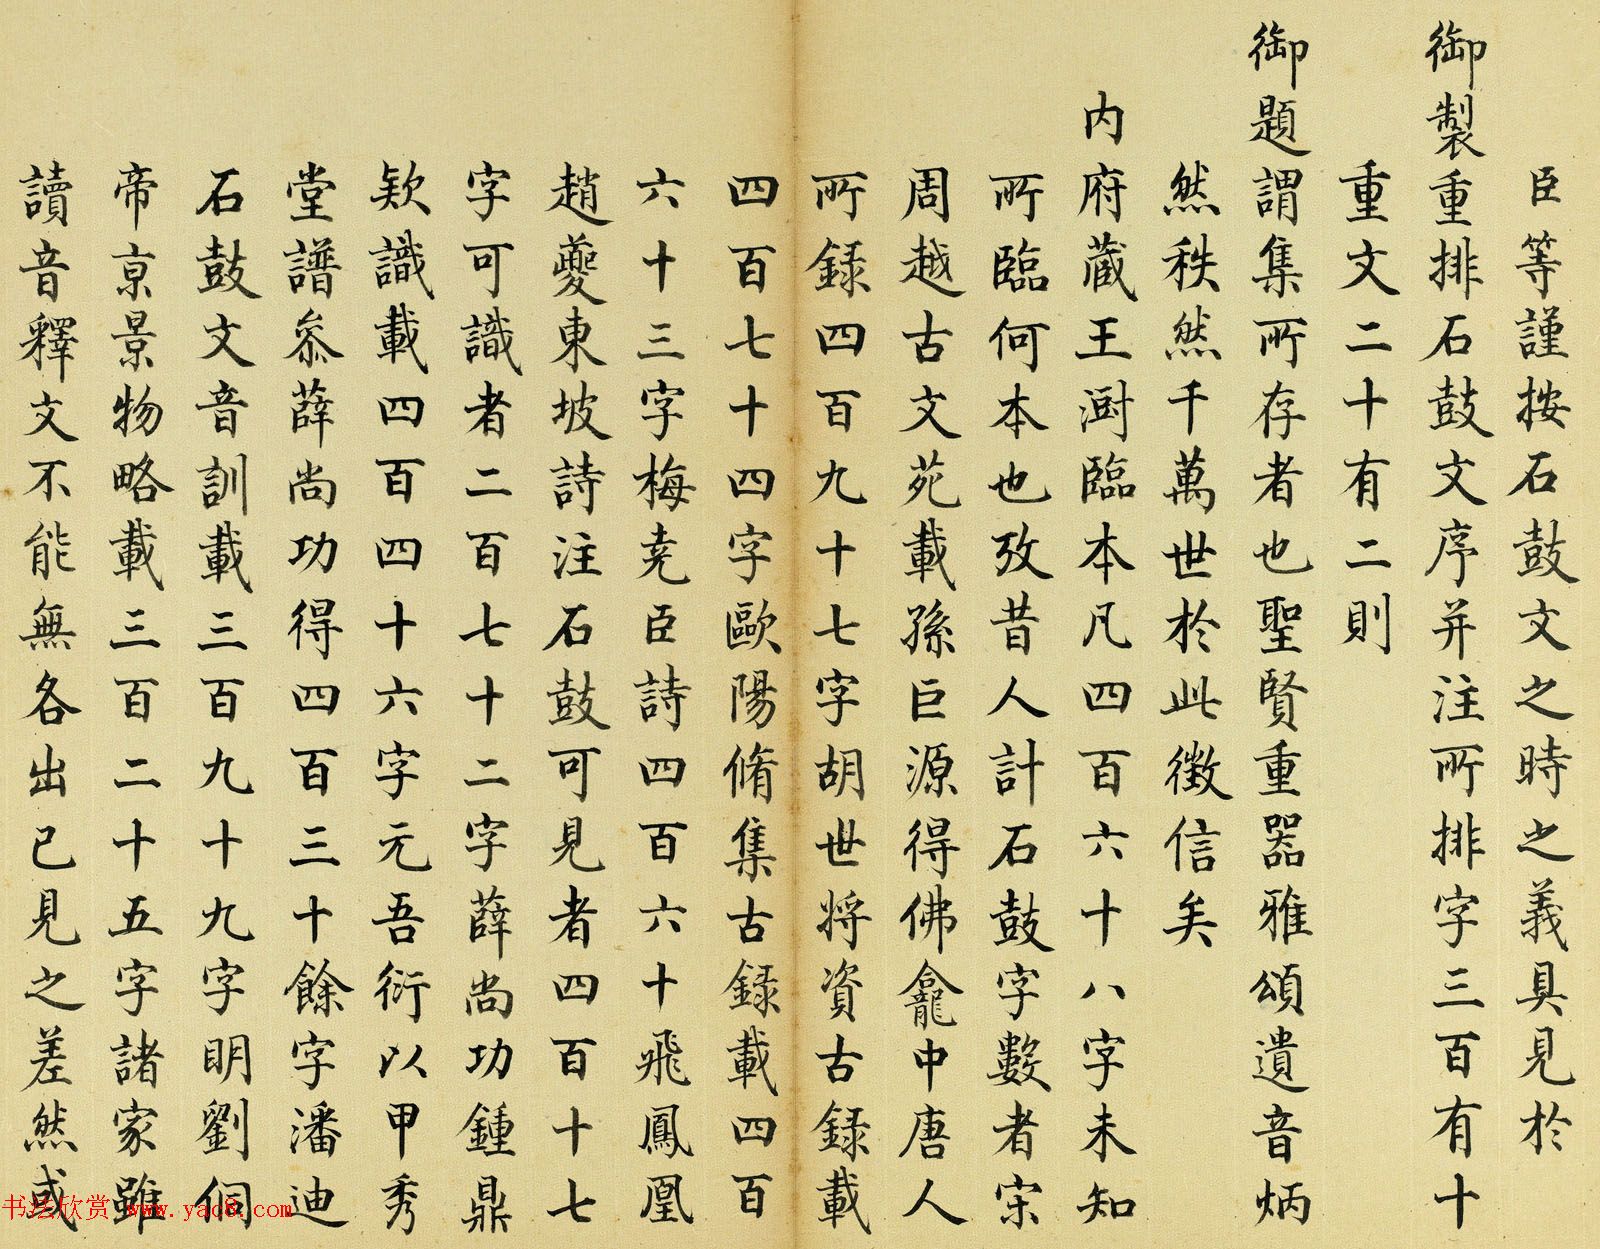 臣等謹按石鼓文之時之義具見於
御製重排石鼓文序并注所排字三百有十
重文二十有二則
御題謂集所存者也聖賢重器雅頌遺音炳
然秩然千萬世於此徵信矣
内府蔵王澍臨本凡四百六十八字未知
所臨何本也攷昔人計石鼓字數者宋
周越古文苑載孫巨源得佛龕中唐人
所録四百九十七字胡世將資古録載
四百七十四字歐陽脩集古録載四百
六十三字梅堯臣詩四百六十飛鳳凰
趙夔東坡詩注石鼓可見者四百十七
字可識者二百七十二字薛尚功鍾鼎
欵識載四百四十六字元吾衍以甲秀
堂譜叅薛尚功得四百三十餘字潘迪
石鼓文音訓載三百九十九字明劉侗
帝京景物略載三百二十五字諸家雖
讀音釋文不能無各出已見之差然或
书法欣赏 www.yac8.com